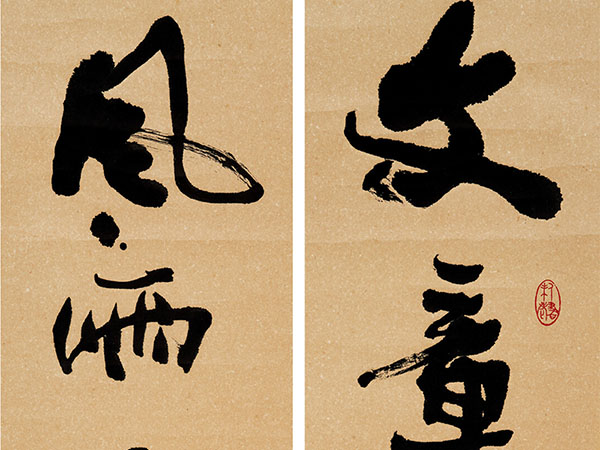 文章
風雨